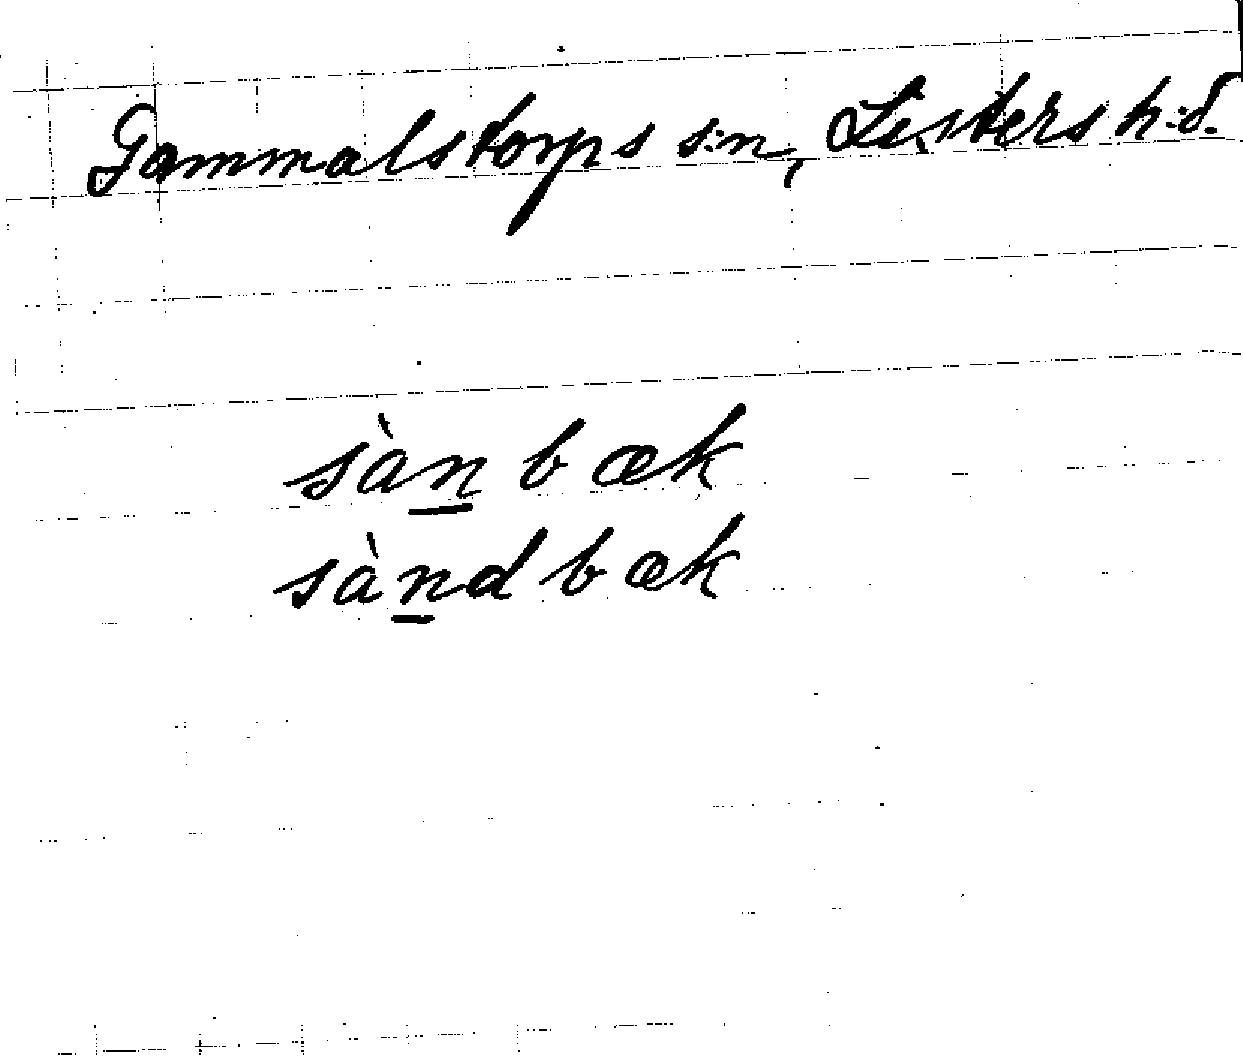 Gammalstorps s:n, Listers h:d.
sàn bæk
sànd bæk